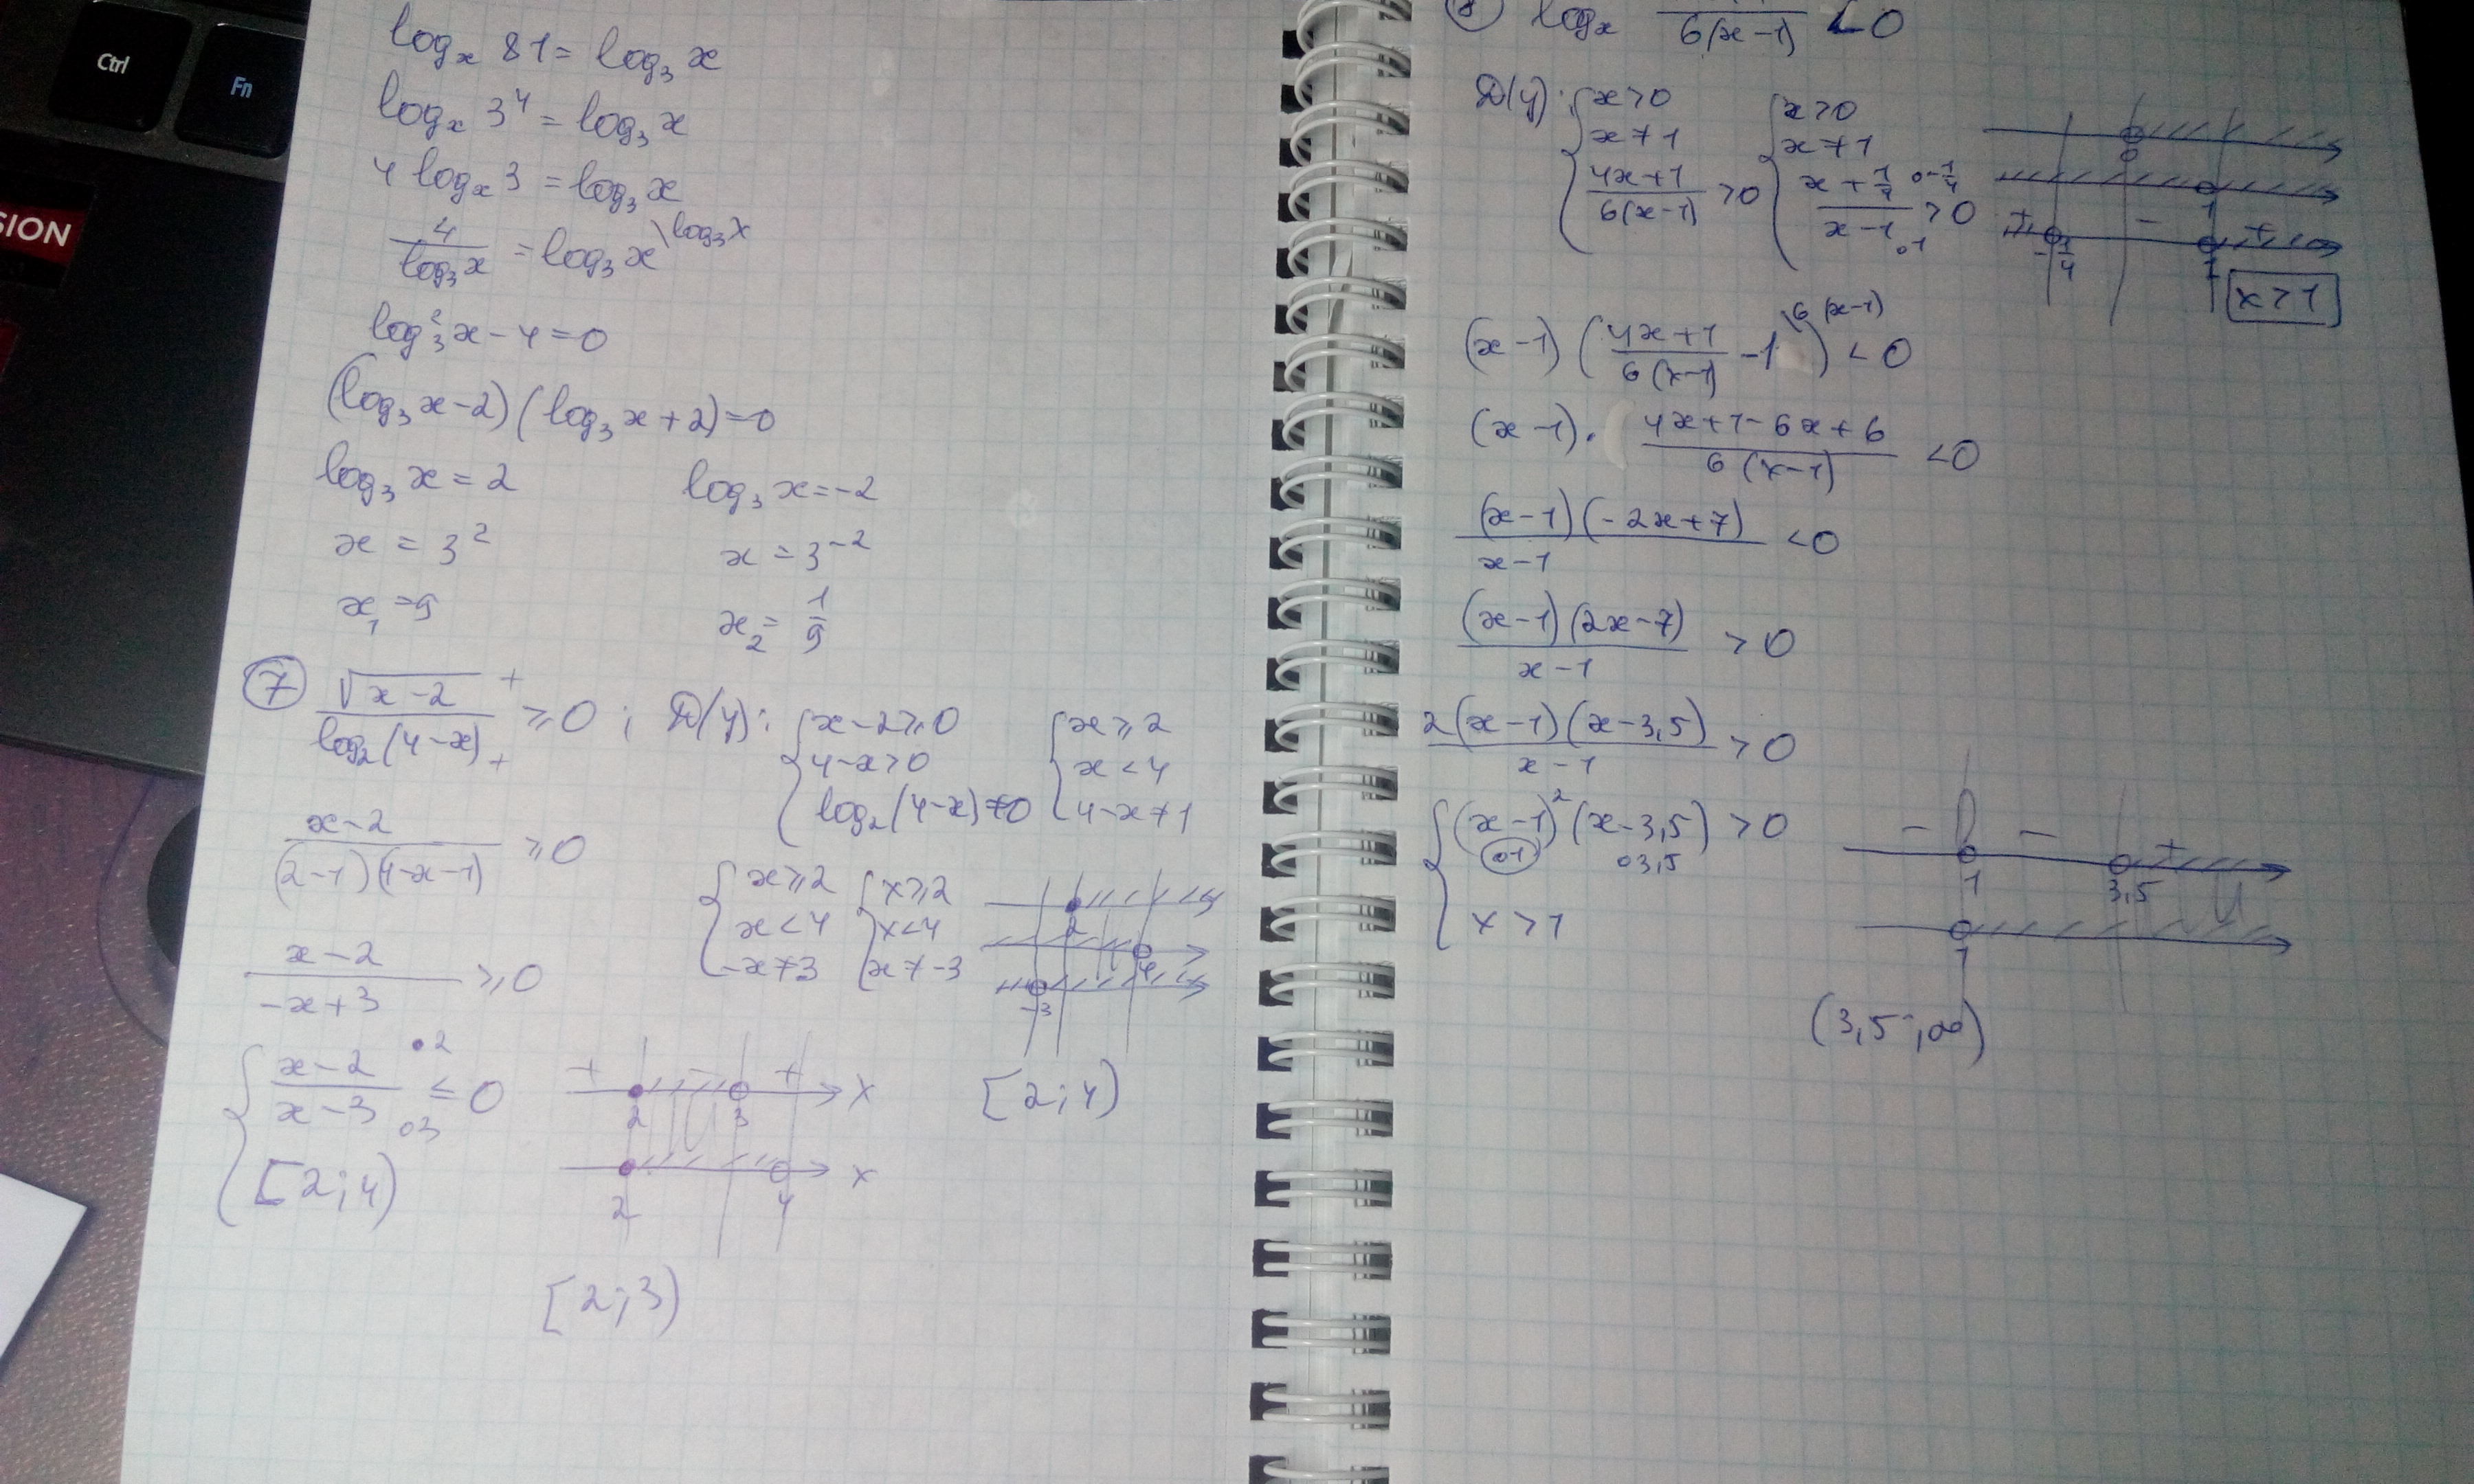 Ctrl
Fn
SION
logₓ 81 = log₃ x
logₓ 3⁴ = log₃ x
4 logₓ 3 = log₃ x
4/(log₃ x) = log₃ x \ log₃ x
log₃² x - 4 = 0
(log₃ x - 2)(log₃ x + 2) = 0
log₃ x = 2   log₃ x = -2
x = 3²   x = 3⁻²
x₁ = 9   x₂ = 1/9
⑦ √(x-2) + / log₂(4-x) + ≥ 0 ; D(y): { x-2 ≥ 0   { x ≥ 2
4-x > 0   x < 4
log₂(4-x) ≠ 0   4-x ≠ 1
(x-2)/((2-1)(4-x-1)) ≥ 0
{ x ≥ 2   { x ≥ 2   2
x < 4   x < 4   4
-x ≠ 3   x ≠ -3   -3
(x-2)/(-x+3) ≥ 0
{ (x-2)/(x-3) ≤ 0   •2   o3   + - + x   2 3   [2;4)
[2;4)   x   2 4
[2;3)
⑧ logₓ /6(x-1) < 0
D(y): { x > 0   { x > 0   0
x ≠ 1   x ≠ 1   1
(4x+1)/(6(x-1)) > 0   (x + 1/4)/(x-1) > 0   o -1/4   o1   + - +   -1/4 1
x > 1
(x-1)((4x+1)/(6(x-1)) - 1 \ 6(x-1)) < 0
(x-1) · (4x+1-6x+6)/(6(x-1)) < 0
(x-1)(-2x+7)/(x-1) < 0
(x-1)(2x-7)/(x-1) > 0
2(x-1)(x-3,5)/(x-1) > 0
{ (x-1)²(x-3,5) > 0   o1   o3,5   - - +   1 3,5
x > 1   1
(3,5; ∞)